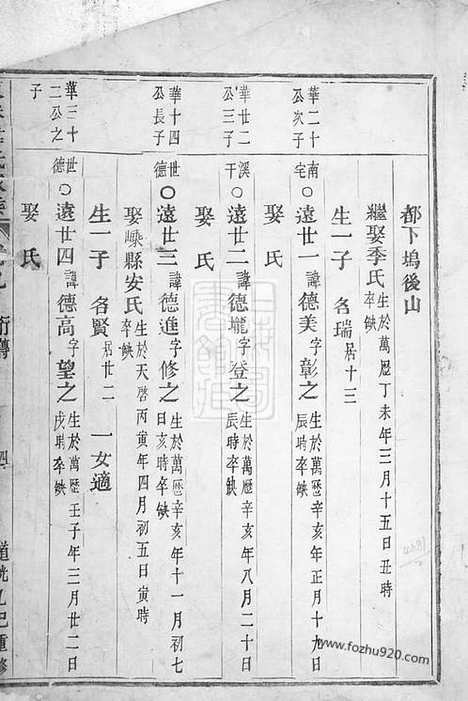 都下塢後山
繼娶季氏生於萬曆丁未年三月十五日丑時卒缺
生一子 各瑞居十三
華二十公次子
南宅○遠廿一諱德美字彰之生於萬曆辛亥年正月十九日辰時卒缺
娶 氏
華廿二公三子
溪干○遠廿二諱德壠字登之生於萬曆辛亥年八月二十日辰時卒缺
娶 氏
華十四公長子
世德○遠廿三諱德進字修之生於萬曆辛亥年十一月初七日時卒缺
娶嵊縣安氏生於天啓丙寅年四月初五日寅時卒缺
生一子 各賢居廿二 一女適
華三十二公之子
世德○遠廿四諱德高字望之生於萬曆壬子年三月廿二日戌時卒缺
娶 氏
行傳 四
道光己重修
www.fozhu920.com